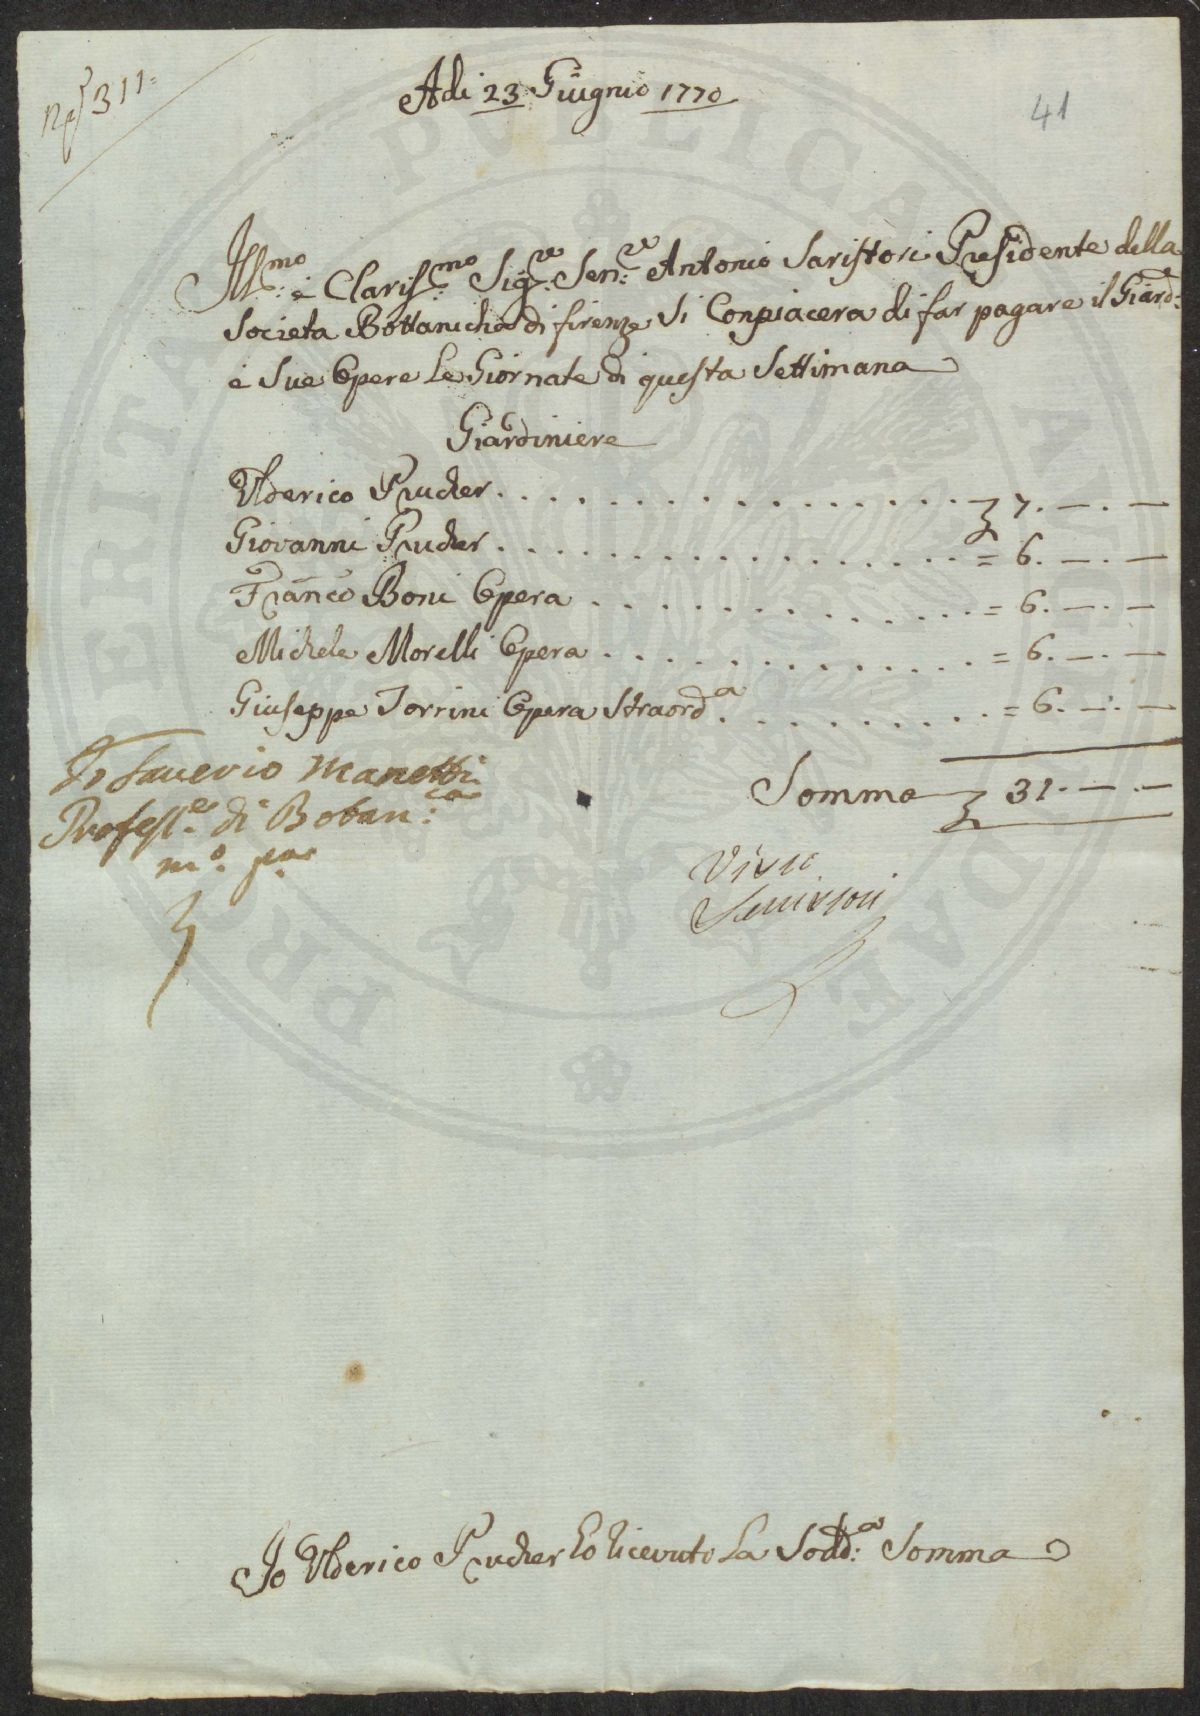 N.° 311=
Adi 23 Giugnio 1770
41
Ill:mo e Clariss:mo Sig:re Sen:re Antonio Saristori Presidente della
Societa Bottanicha di firenze Si Conpiacera di far pagare il Giard:
e Sue Opere Le Giornate di questa Settimana
Giardiniere
Ulderico Prucker . . . . . . . . . . . . . . . . 7. — . —
Giovanni Prucker . . . . . . . . . . . . . . . . = 6. — . —
Franco Boni Opera . . . . . . . . . . . . . = 6. — . —
Michele Morelli Opera . . . . . . . . . . . . = 6. — . —
Giuseppe Torrini Opera Straord:a . . . . . . . . . = 6. — . —
Somma 31. — . —
Io Saverio Manetti
Profess:e di Botan:ca
m:o p:a
Visto
Serristori
Io Ulderico Prucker Ho Ricevuto La Sodd:a Somma
PROSPERITATI PUBLICAE AUGENDAE